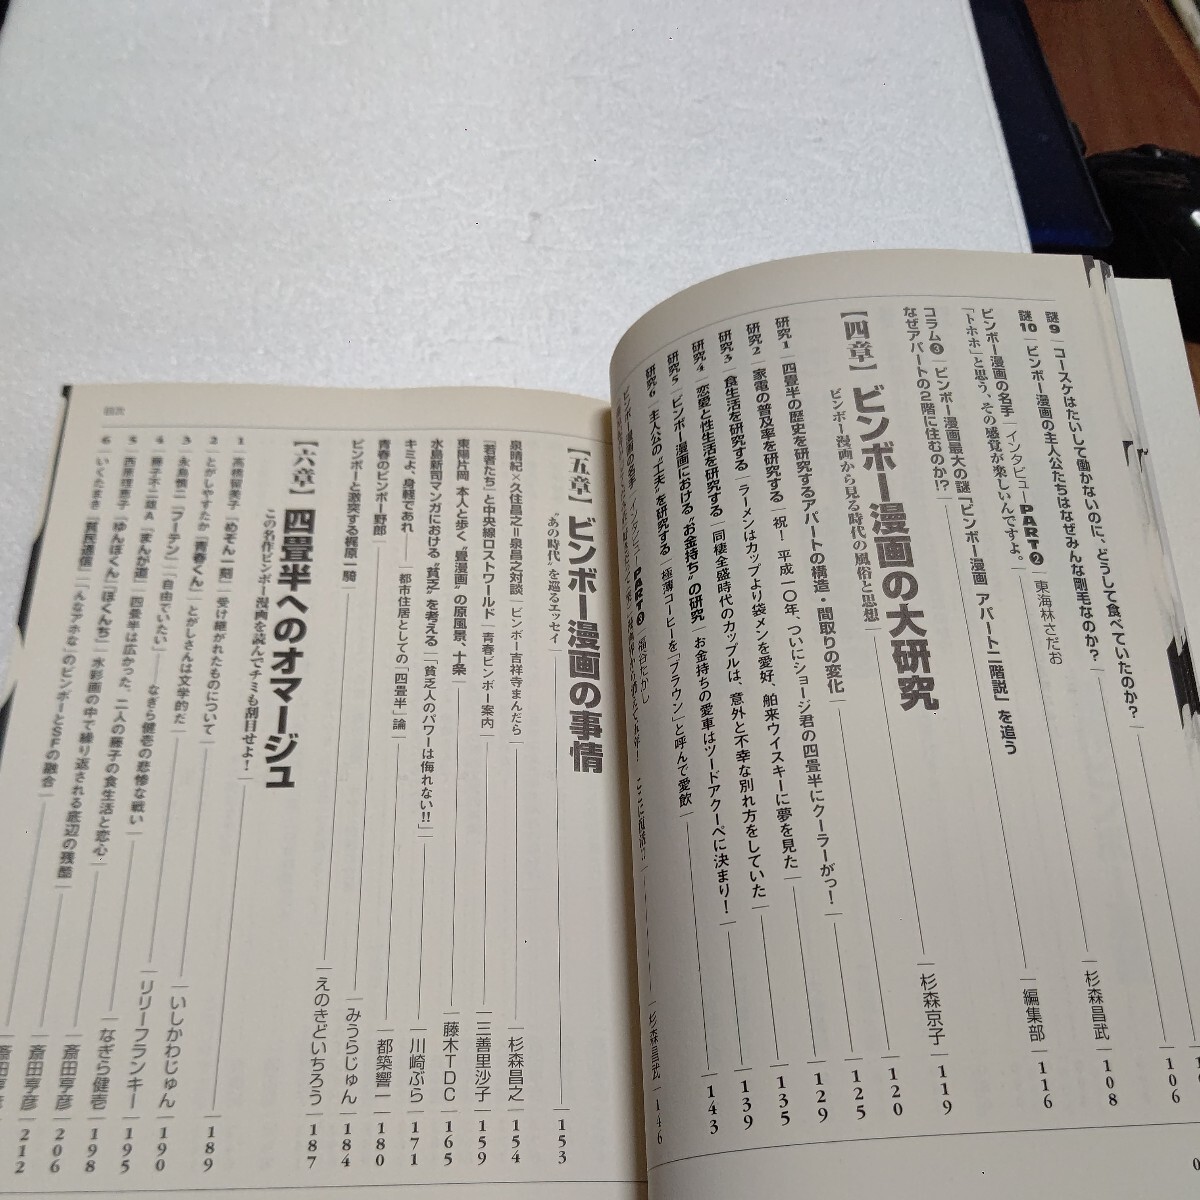 謎9 コースケはたいして働かないのに、どうして食べていたのか?
106
謎10 ビンボー漫画の主人公たちはなぜみんな剛毛なのか?
杉森昌武
108
ビンボー漫画の名手 インタビューPART❷ 東海林さだお
「トホホ」と思う、その感覚が楽しいんですよ。
編集部
116
コラム❸ ビンボー漫画最大の謎「ビンボー漫画 アパート二階説」を追う
なぜアパートの2階に住むのか!?
杉森京子
119
【四章】ビンボー漫画の大研究
120
ビンボー漫画から見る時代の風俗と思想
研究1 四畳半の歴史を研究する アパートの構造・間取りの変化
125
研究2 家電の普及率を研究する 祝!平成一〇年、ついにショージ君の四畳半にクーラーがっ!
129
研究3 食生活を研究する ラーメンはカップより袋メンを愛好、舶来ウイスキーに夢を見た
135
研究4 恋愛と性生活を研究する 同棲全盛時代のカップルは、意外と不幸な別れ方をしていた
139
研究5 ビンボー漫画における“お金持ち”の研究 お金持ちの愛車はツードアクーペに決まり!
143
研究6 主人公の“工夫”を研究する 極薄コーヒーを「ブラウン」と呼んで愛飲
ビンボー漫画の名手 インタビューPART❸ 福谷たかし
杉森昌武
146
【五章】ビンボー漫画の事情
153
“あの時代”を巡るエッセイ
泉晴紀×久住昌之=泉昌之対談 ビンボー吉祥寺まんだら
杉森昌之
154
「若者たち」と中央線ロストワールド 青春ビンボー案内
三善里沙子
159
東陽片岡 本人と歩く“畳漫画”の原風景、十条
藤木TDC
165
水島新司マンガにおける“貧乏”を考える 「貧乏人のパワーは侮れない!!」
川崎ぶら
171
キミよ、身軽であれ 都市住居としての「四畳半」論
都築響一
180
青春のビンボー野郎
みうらじゅん
184
ビンボーと激突する梶原一騎
えのきどいちろう
187
【六章】四畳半へのオマージュ
この名作ビンボー漫画を読んでチミも刮目せよ!
189
1 高橋留美子「めぞん一刻」 受け継がれたものについて
いしかわじゅん
190
2 とがしやすたか「青春くん」 とがしさんは文学的だ
リリーフランキー
195
3 永島慎二「フーテン」「自由でいたい」 なぎら健壱の悲惨な戦い
なぎら健壱
198
4 藤子不二雄A「まんが道」 四畳半は広かった、二人の藤子の食生活と恋心
斎田亨彦
206
5 西原理恵子「ゆんぼくん」「ぼくんち」 水彩画の中で繰り返される底辺の残酷
斎田亨彦
212
6 いくたまき「貧民通信」「んなアホな」のビンボーとSFの融合
目次